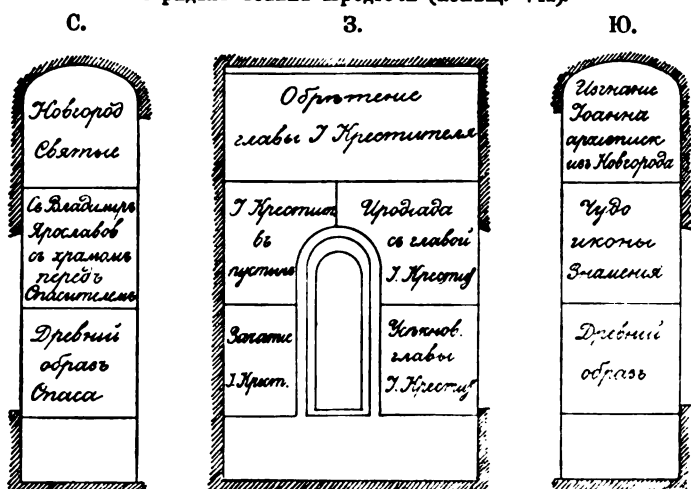 С.
З.
Ю.
Новгород
Святые
Св Владимиръ
Ярославов
съ храмомъ
передъ
Спасителемъ
Древний
образъ
Спаса
Обрѣтение
главы I Крестителя
I Крестит
въ
пустынѣ
Иродiада
съ главой
I. Крестит
Зачатие
I. Крест.
Усѣкнов.
главы
I. Крестит
Изгнание
Iоанна
архиеписк
изъ Новгорода
Чудо
иконы
Знамения
Древний
образъ